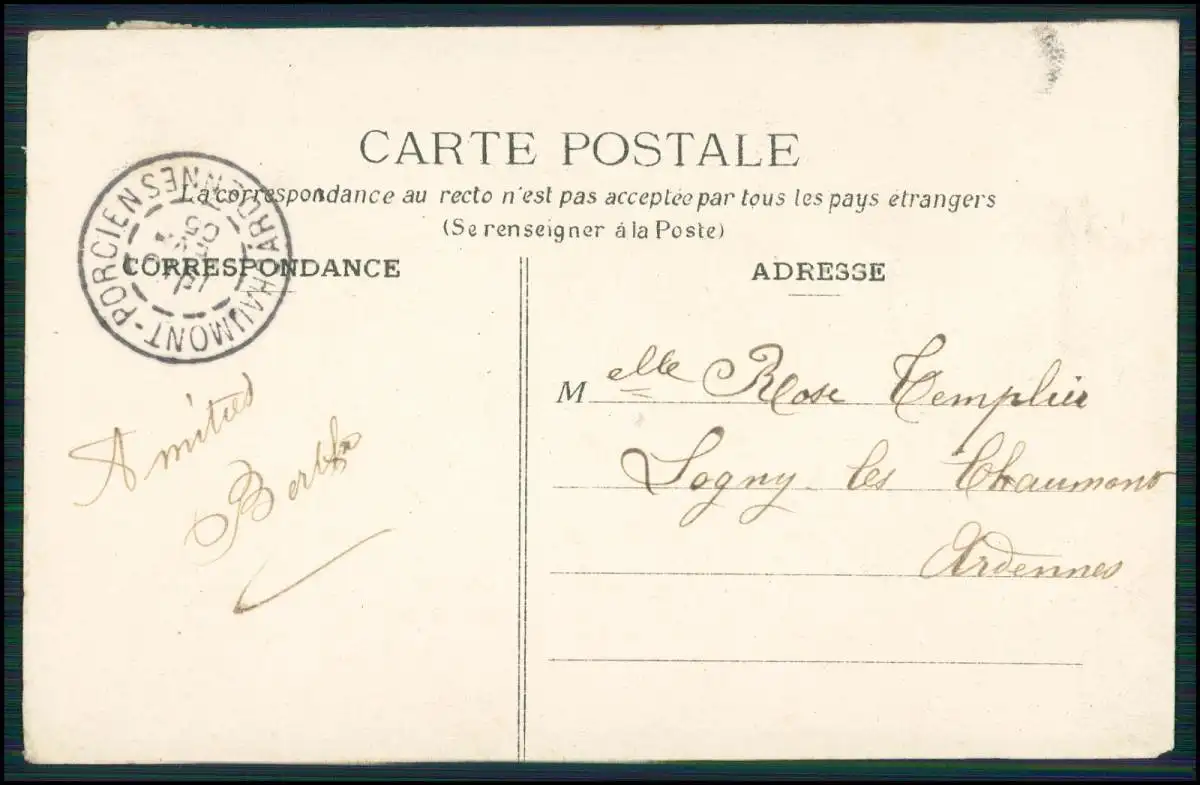 CARTE POSTALE
La correspondance au recto n'est pas acceptée par tous les pays étrangers
(Se renseigner à la Poste)
CHAUMONT-PORCIEN ARDENNES
05
CORRESPONDANCE
ADRESSE
Amitiés
Berthe
Melle Rose Templier
Logny les Chaumont
Ardennes